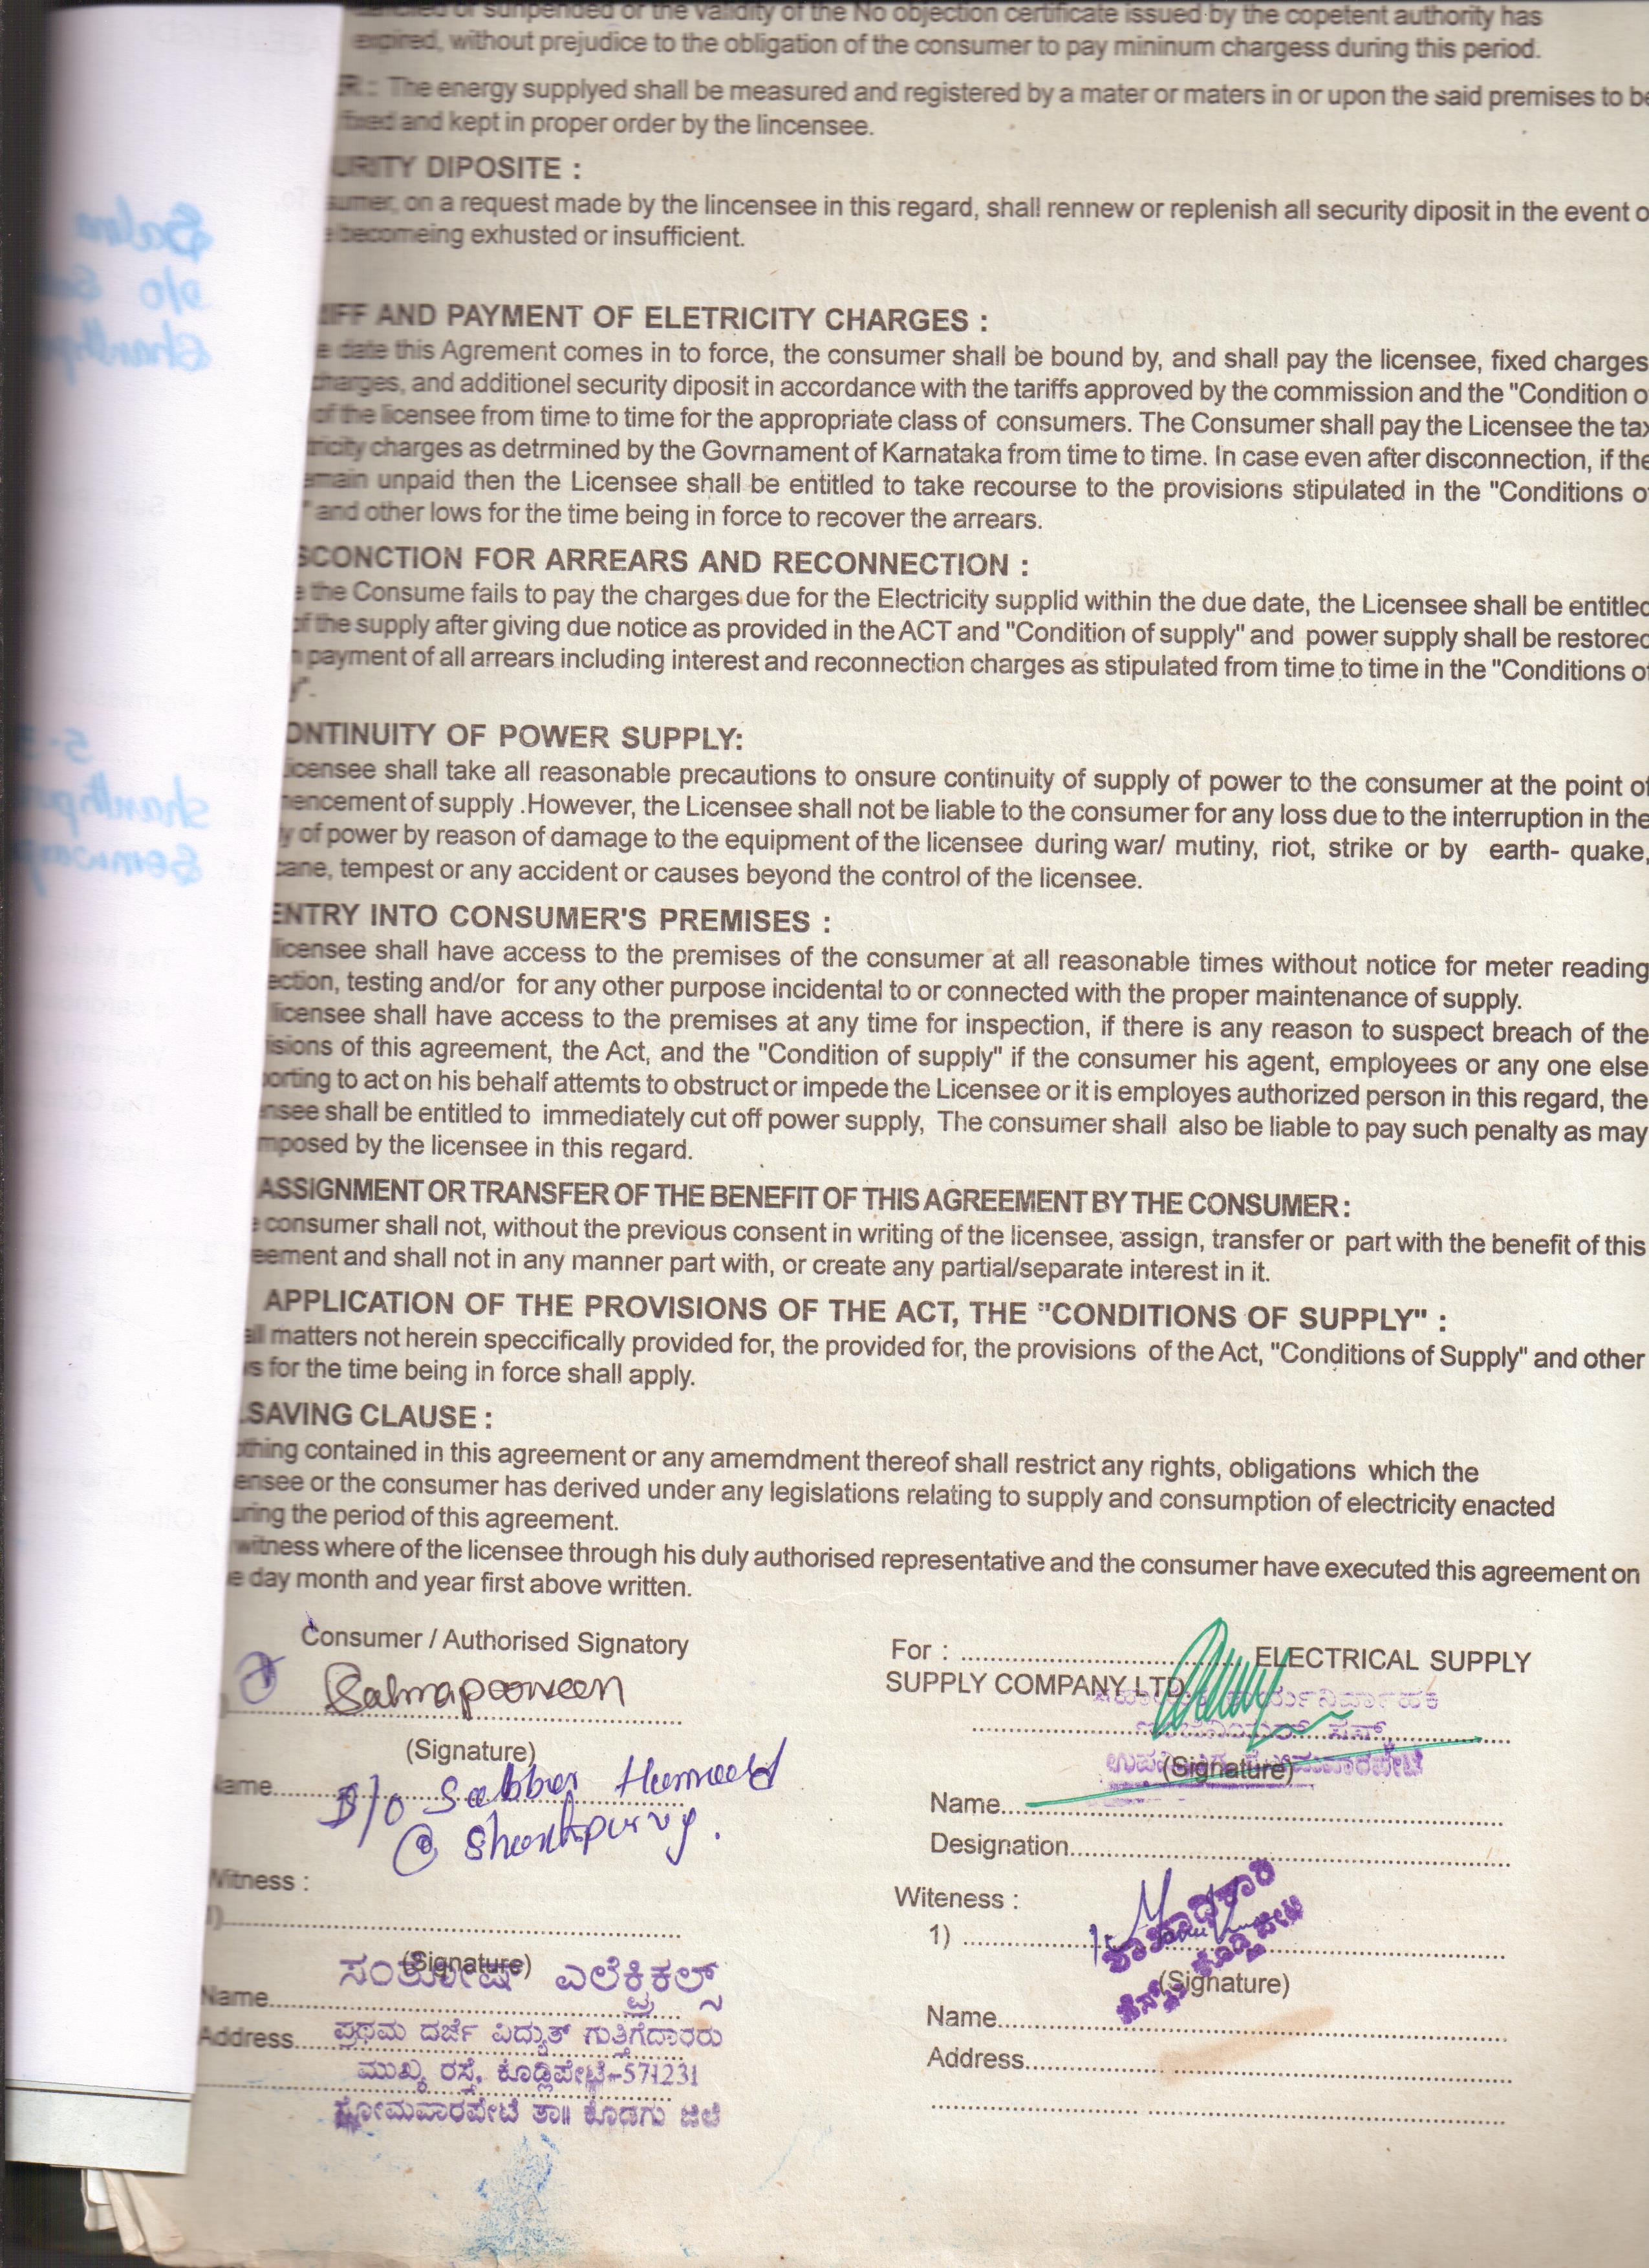 expired, without prejudice to the obligation of the consumer to pay mininum chargess during this period.
The energy supplyed shall be measured and registered by a mater or maters in or upon the said premises to be
fixed and kept in proper order by the lincensee.
URITY DIPOSITE :
sumer, on a request made by the lincensee in this regard, shall rennew or replenish all security diposit in the event o
becomeing exhusted or insufficient.
IFF AND PAYMENT OF ELETRICITY CHARGES :
e date this Agrement comes in to force, the consumer shall be bound by, and shall pay the licensee, fixed charges
charges, and additionel security diposit in accordance with the tariffs approved by the commission and the "Condition o
of the licensee from time to time for the appropriate class of consumers. The Consumer shall pay the Licensee the tax
tricity charges as detrmined by the Govrnament of Karnataka from time to time. In case even after disconnection, if the
emain unpaid then the Licensee shall be entitled to take recourse to the provisions stipulated in the "Conditions of
" and other lows for the time being in force to recover the arrears.
SCONCTION FOR ARREARS AND RECONNECTION :
e the Consume fails to pay the charges due for the Electricity supplid within the due date, the Licensee shall be entitled
of the supply after giving due notice as provided in the ACT and "Condition of supply" and power supply shall be restored
n payment of all arrears including interest and reconnection charges as stipulated from time to time in the "Conditions of
y".
ONTINUITY OF POWER SUPPLY:
icensee shall take all reasonable precautions to onsure continuity of supply of power to the consumer at the point of
mencement of supply .However, the Licensee shall not be liable to the consumer for any loss due to the interruption in the
y of power by reason of damage to the equipment of the licensee during war/ mutiny, riot, strike or by earth- quake,
cane, tempest or any accident or causes beyond the control of the licensee.
ENTRY INTO CONSUMER'S PREMISES :
licensee shall have access to the premises of the consumer at all reasonable times without notice for meter reading
ection, testing and/or for any other purpose incidental to or connected with the proper maintenance of supply.
licensee shall have access to the premises at any time for inspection, if there is any reason to suspect breach of the
isions of this agreement, the Act, and the "Condition of supply" if the consumer his agent, employees or any one else
porting to act on his behalf attemts to obstruct or impede the Licensee or it is employes authorized person in this regard, the
nsee shall be entitled to immediately cut off power supply, The consumer shall also be liable to pay such penalty as may
mposed by the licensee in this regard.
ASSIGNMENT OR TRANSFER OF THE BENEFIT OF THIS AGREEMENT BY THE CONSUMER :
e consumer shall not, without the previous consent in writing of the licensee, assign, transfer or part with the benefit of this
eement and shall not in any manner part with, or create any partial/separate interest in it.
APPLICATION OF THE PROVISIONS OF THE ACT, THE "CONDITIONS OF SUPPLY" :
all matters not herein speccifically provided for, the provided for, the provisions of the Act, "Conditions of Supply" and other
ws for the time being in force shall apply.
.SAVING CLAUSE :
othing contained in this agreement or any amemdment thereof shall restrict any rights, obligations which the
ensee or the consumer has derived under any legislations relating to supply and consumption of electricity enacted
uring the period of this agreement.
witness where of the licensee through his duly authorised representative and the consumer have executed this agreement on
e day month and year first above written.
Consumer / Authorised Signatory
Salmaparveen
(Signature)
Name
D/o Sabbar Hameed
@ Shanthpurvy.
Witness :
(Signature)
ಸಂತೋಷ್ ಎಲೆಕ್ಟ್ರಿಕಲ್ಸ್
Name
Address
ಪ್ರಥಮ ದರ್ಜೆ ವಿದ್ಯುತ್ ಗುತ್ತಿಗೆದಾರರು
ಮುಖ್ಯ ರಸ್ತೆ, ಕೊಡ್ಲಿಪೇಟೆ-571231
ಸೋಮವಾರಪೇಟೆ ತಾ॥ ಕೊಡಗು ಜಿಲ್ಲೆ
For : ELECTRICAL SUPPLY
SUPPLY COMPANY LTD
(Signature)
Name
Designation
Witeness :
1)
ಶಾಖಾಧಿಕಾರಿ
ಕೊಡ್ಲಿಪೇಟೆ
(Signature)
Name
Address